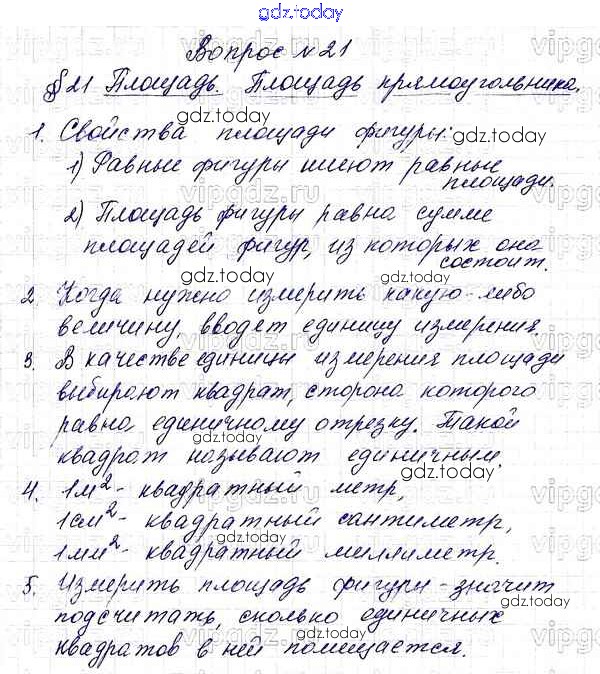 gdz.today
Вопрос №21
§21 Площадь. Площадь прямоугольника.
1. Свойства площади фигуры:
1) Равные фигуры имеют равные
площади.
2) Площадь фигуры равна сумме
площадей фигур, из которых она
состоит.
2. Когда нужно измерить какую-либо
величину, вводят единицу измерения.
3. В качестве единицы измерения площади
выбирают квадрат, сторона которого
равна единичному отрезку. Такой
квадрат называют единичным.
4. 1м² - квадратный метр,
1см² - квадратный сантиметр,
1мм² - квадратный миллиметр.
5. Измерить площадь фигуры - значит
подсчитать, сколько единичных
квадратов в ней помещается.